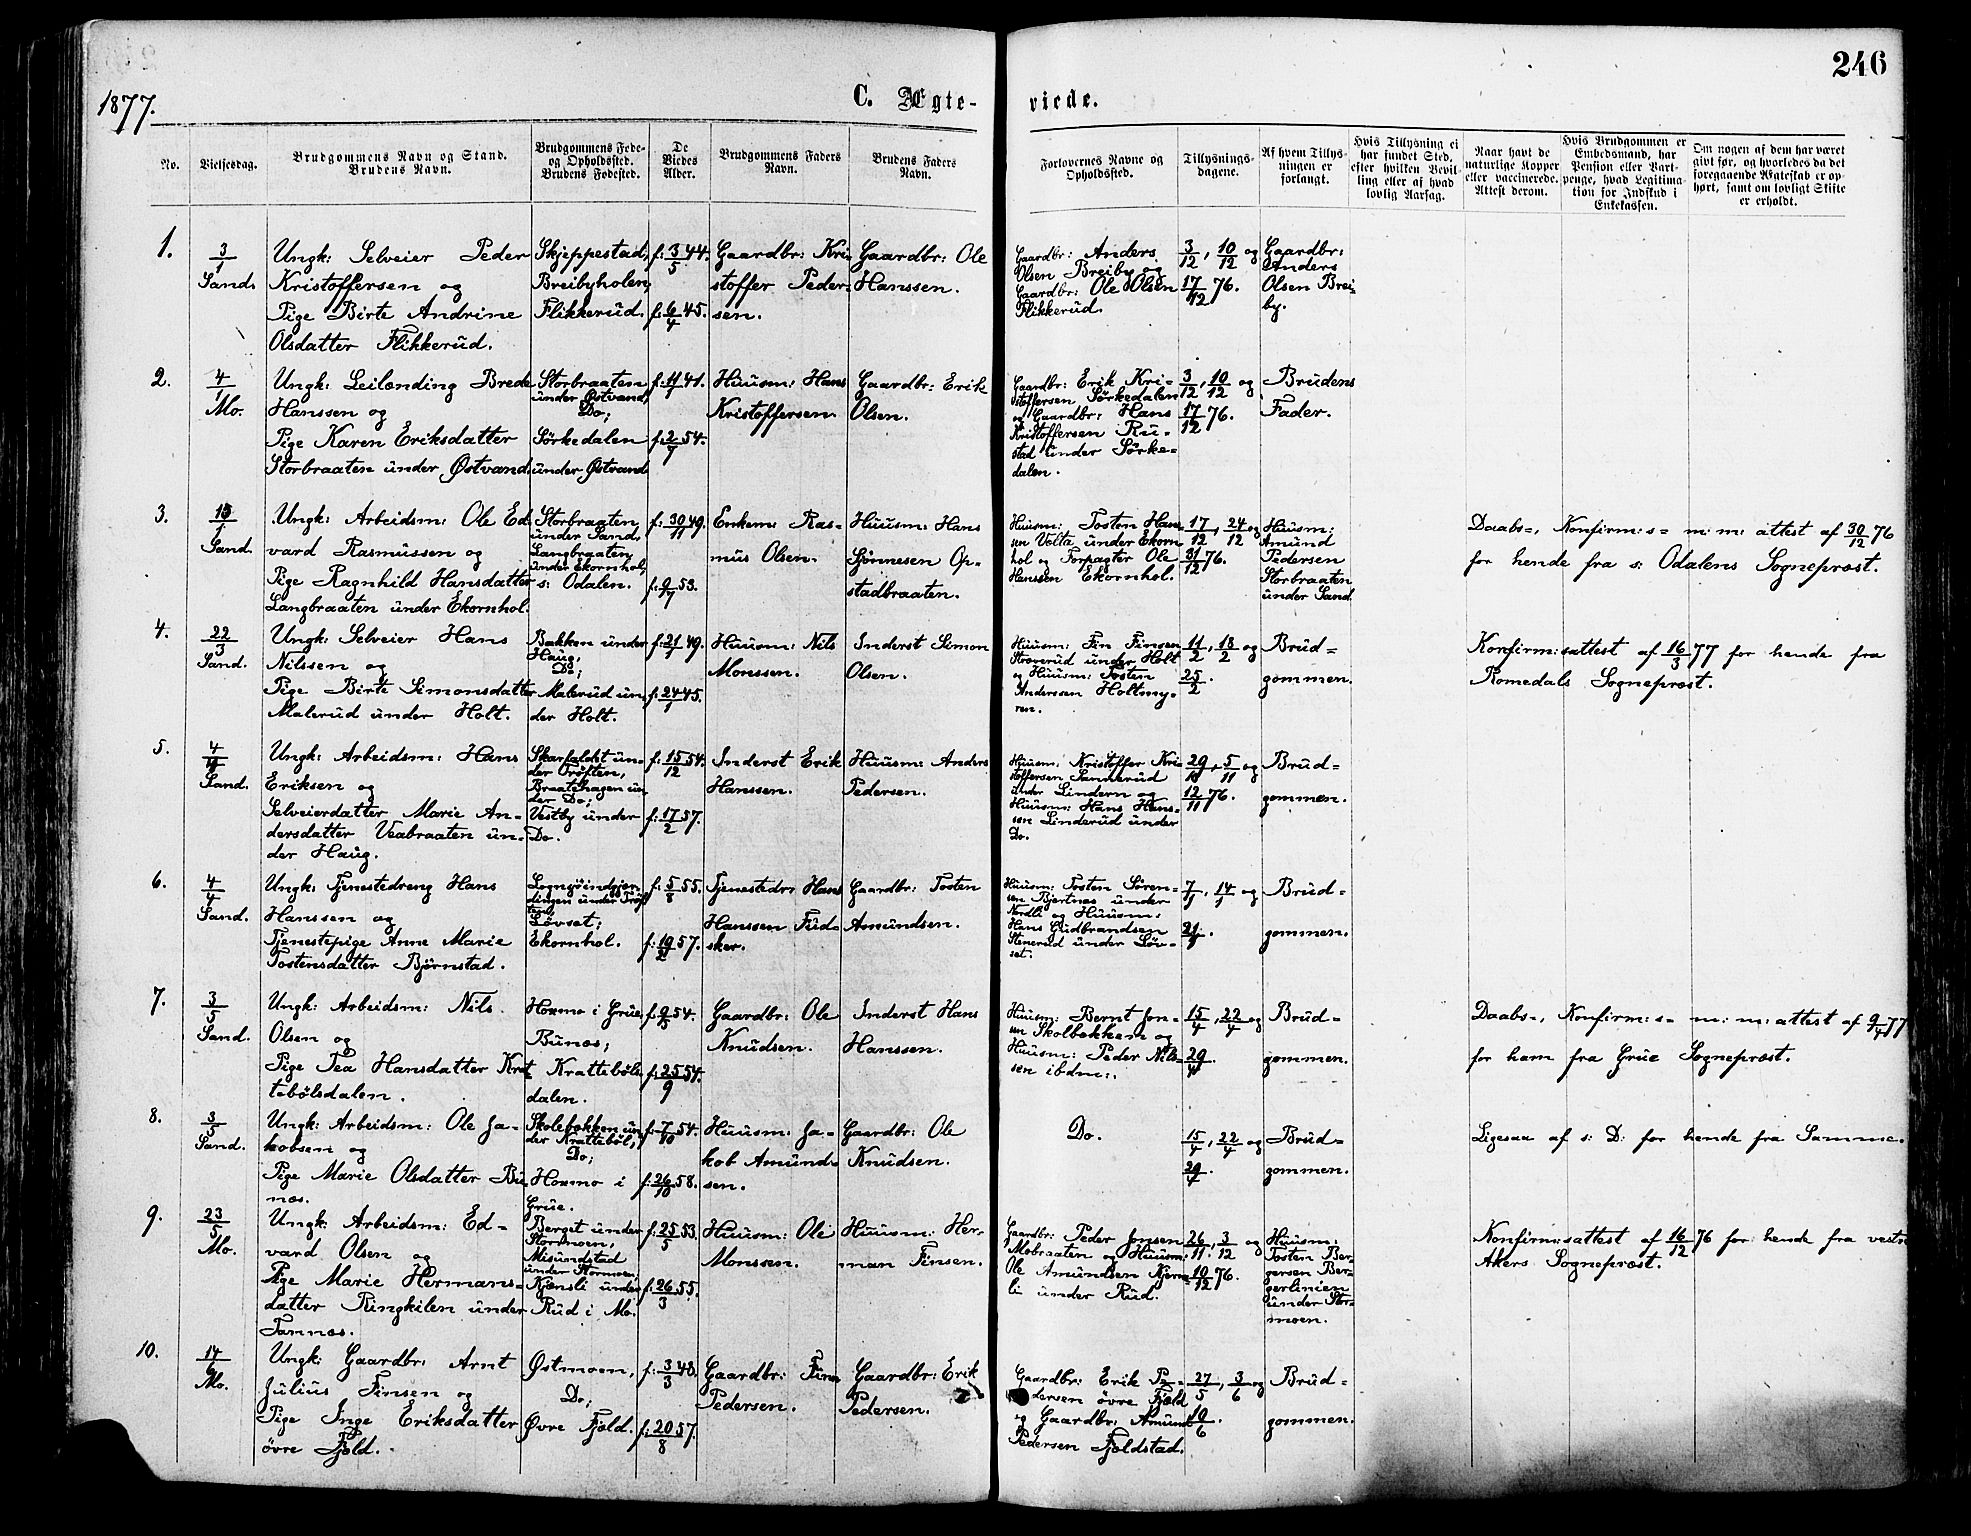 246
1877.
C. Ægte-
viede.
No.
Vielsesdag.
Brudgommens Navn og Stand.
Brudens Navn.
Brudgommens Føde-
og Opholdssted.
Brudens Fødested.
De
Viedes
Alder.
Brudgommens Faders
Navn.
Brudens Faders
Navn.
Forlovernes Navne og
Opholdssted.
Tillysnings-
dagene.
Af hvem Tillys-
ningen er
forlangt.
Hvis Tillysning ei
har fundet Sted,
efter hvilken Bevil-
ling eller af hvad
lovlig Aarsag.
Naar havt de
naturlige Kopper
eller vaccinerede.
Attest derom.
Hvis Brudgommen er
Embedsmand, har
Pension eller Vart-
penge, hvad Legitima-
tion for Indskud i
Enkekassen.
Om nogen af dem har været
givt før, og hvorledes da det
foregaaende Ægteskab er op-
hørt, samt om lovligt Skifte
er erholdt.
1.
3/1
Sand.
Ungk: Selveier Peder
Kristoffersen og
Pige Birte Andrine
Olsdatter Flikkerud.
Skjeppestad,
Breibyholen,
Flikkerud.
f: 3/5 44.
f: 6/4 45.
Gaardbr: Kri
stoffer Peder-
sen.
Gaardbr: Ole
Hanssen.
Gaardbr: Anders
Olsen Breiby og
Gaardbr: Ole Olsen
Flikkerud.
3/12, 10/12 og
17/12 76.
Gaardbr:
Anders
Olsen Brei-
by.
2.
4/1
Mo.
Ungk: Leilending Brede
Hanssen og
Pige Karen Eriksdatter
Storbraaten under Østvand.
Storbraaten
under Østvand,
Do;
Sörkedalen
under Østvand
f: 11/1 41.
f: 2/7 54.
Huusm: Hans
Kristoffersen.
Gaardbr: Erik
Olsen.
Gaardbr: Erik Kri-
stoffersen Sörkedalen
og Gaardbr: Hans
Kristoffersen Ru-
stad under Sörke-
dalen.
3/12, 10/12 og
17/12 76.
Brudens
Fader.
3.
Sand.
Ungk: Arbeidsm: Ole Ed
vard Rasmussen og
Pige Ragnhild Hansdatter
Langbraaten under Ekornhol.
Storbraaten
under Sand,
Langbraaten
under Ekornhol,
s: Odalen.
f: 30/11 49.
f: 9/7 53.
Enkem: Ras-
mus Olsen.
Huusm: Hans
Sjönnesen Op-
stadbraaten.
Huusm: Tosten Hans
sen Volta under Ekorn
hol og Forpagter Ole
Hanssen Ekornhol.
17/12, 24/12 og
31/12 76.
Huusm:
Amund
Pedersen
Storbraaten
under Sand.
Daabs-, Konfirm:s- m: m: attest af 30/12 76
for hende fra s: Odalens Sogneprest.
4.
22/3
Sand.
Ungk: Selveier Hans
Nilssen og
Pige Birte Simonsdatter
Malerud under Holt.
Bakken under
Haug,
Do;
Malerud un-
der Holt.
f: 21/1 49.
f: 24/1 45.
Huusm: Nils
Monssen.
Inderst Simon
Olsen.
Huusm: Fin Finsen
under Holt
og Huusm: Tosten
Anderssen Holtmy-
ren.
11/2, 18/2 og
25/2.
Brud-
gommen.
Konfirm:sattest af 16/3 77 for hende fra
Romedals Sogneprest.
5.
Sand.
Ungk: Arbeidsm: Hans
Eriksen og
Selveierdatter Marie An-
dersdatter Veabraaten un-
der Haug.
Skarfaldet un-
der Tröften,
Braatehagen un
der Do;
Vestby under
Do.
f: 15/12 54.
f: 17/2 57.
Inderst Erik
Hanssen.
Huusm: Anders
Pedersen.
Huusm: Kristoffer Kri-
stoffersen Sannerud
under Lindern og
Huusm: Hans Hans-
sen Linderud under
Do.
29/10, 5/11 og
12/11 76.
Brud-
gommen.
6.
4/4
Sand.
Ungk: Tjenestedreng Hans
Hanssen og
Tjenestepige Anne Marie
Tostensdatter Björnstad.
under Tröf
ten,
Lövset;
Ekornhol.
f: 5/8 55.
f: 19/2 57.
Tjenestedr: Hans
Hanssen Fud-
sker.
Gaardbr: Tosten
Amundsen.
Huusm: Tosten Sören-
sen Bjertnæs under
Nordli og Huusm:
Hans Gudbrandsen
Stenerud under Löv-
set.
7/1, 14/1 og
21/1.
Brud-
gommen.
7.
3/5
Sand.
Ungk: Arbeidsm: Nils
Olsen og
Pige Tea Hansdatter Krat
tebölsdalen.
Hoxmo i Grue
Bunæs;
Kratteböls
dalen.
f: 9/5 54.
f: 25/9 54.
Gaardbr: Ole
Knudsen.
Inderst Hans
Hanssen.
Huusm: Bernt Jon-
sen Skolbekken og
Huusm: Peder Nils-
sen ibdm:.
15/4, 22/4 og
29/4.
Brud-
gommen.
Daabs-, Konfirm:s- m: m: attest af 9/4 77
for ham fra Grue Sogneprest.
8.
3/5
Sand.
Ungk: Arbeidsm: Ole Ja-
kobsen og
Pige Marie Olsdatter Bu
næs.
Skolebekken un
der Kratteböl,
Do;
Hoxmo i
Grue.
f: 7/10 54.
f: 26/10 58.
Huusm: Ja-
kob Amund-
sen.
Gaardbr: Ole
Knudsen.
Do.
15/4, 22/4 og
29/4.
Brud-
gommen.
Ligesaa af s: D: for hende fra Samme.
9.
23/5
Mo.
Ungk: Arbeidsm: Ed-
vard Olsen og
Pige Marie Hermans-
datter Ringkilen under
Tannæs.
Berget under
Stormoen,
Misundstad
under Stormoen
Kjernsli under
Rud i Mo.
f: 25/5 53.
f: 26/3 55.
Huusm: Ole
Monssen.
Huusm: Her-
man Finsen.
Gaardbr: Peder Jonsen
Mobraaten og Huusm:
Ole Amundsen Kjerns-
li under Rud.
26/11, 3/12 og
10/12 76.
Huusm:
Tosten Ber-
gersen Ber-
gerlinien
under Stor-
moen.
Konfirm:sattest af 16/12 76 for hende fra vestre
Akers Sogneprest.
10.
14/6
Mo.
Ungk: Gaardbr: Arnt
Julius Finsen og
Pige Inge Eriksdatter
övre Fjeld.
Østmoen,
Do;
Øvre Fjeld.
f: 3/3 48.
f: 20/8 57.
Gaardbr: Finn
Pedersen.
Gaardbr: Erik
Pedersen.
Gaardbr: Erik Pe-
dersen övre Fjeld
og Gaardbr: Amund
Pedersen Fjeldstad.
27/5, 3/6 og
10/6.
Brud-
gommen.